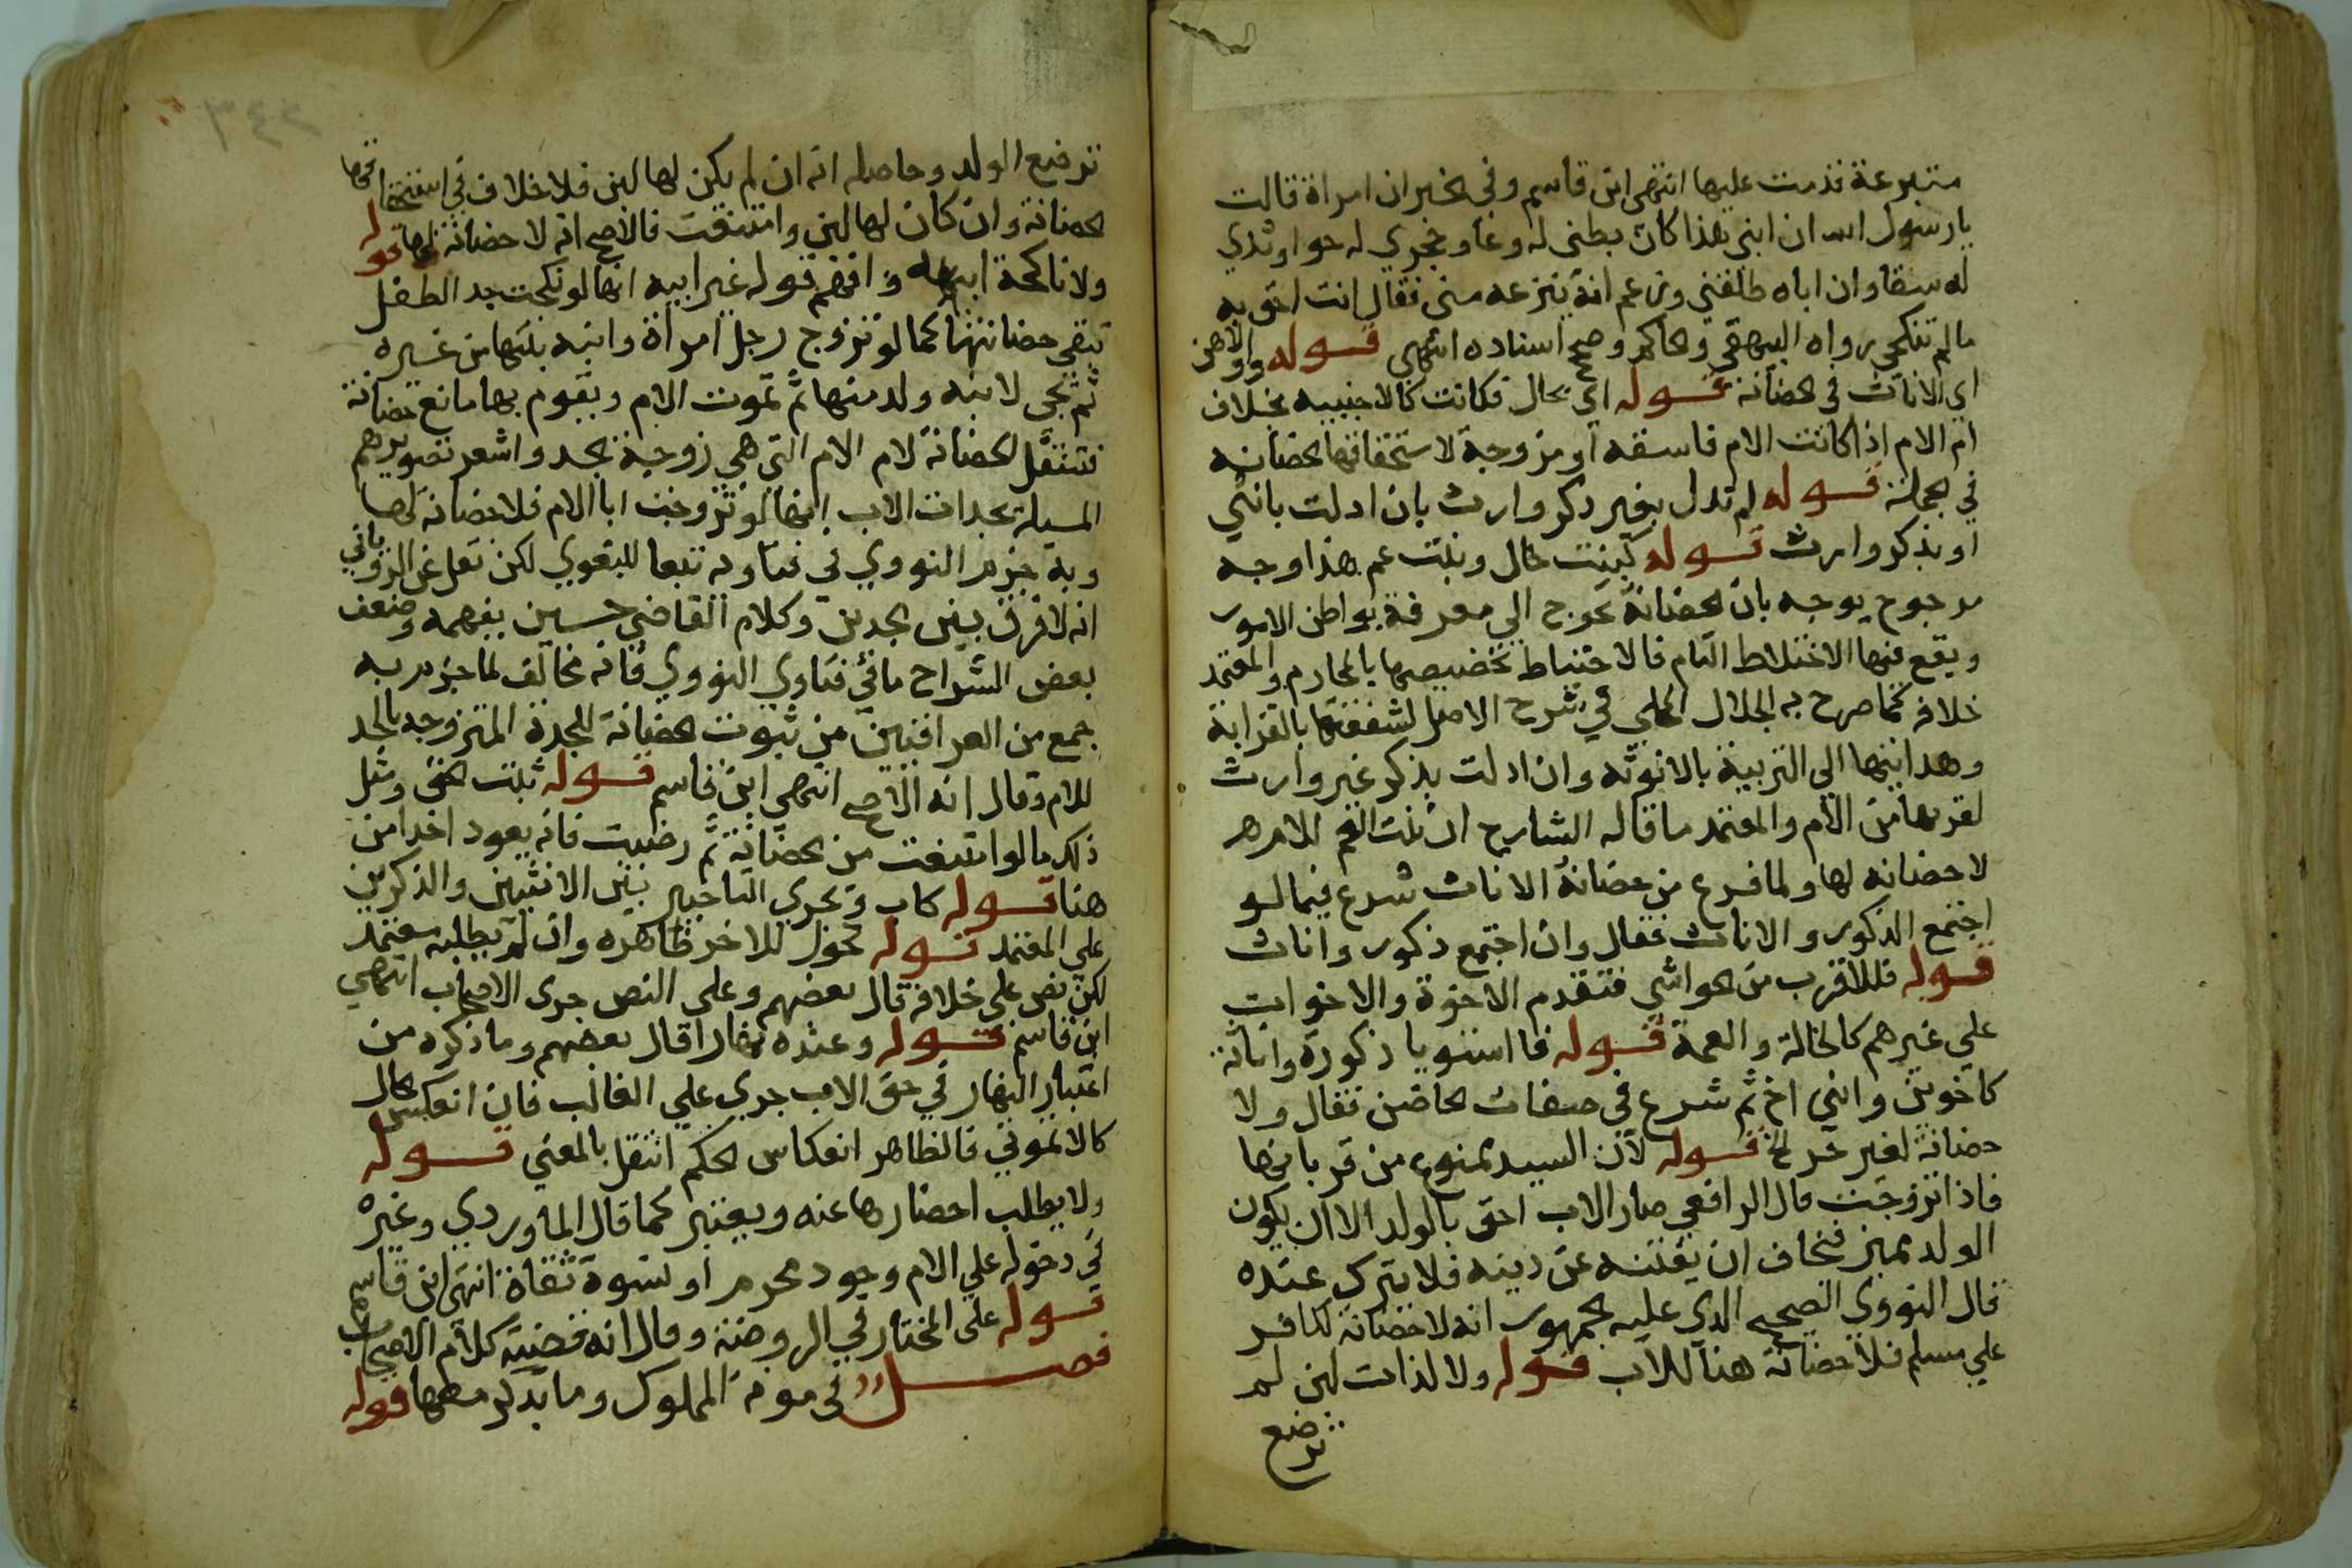 متبرعة قدمت عليها انتهى ابن قاسم وفي الخبر ان امراة قالت
يا رسول الله ان ابني هذا كان بطني له وعا وحجري له حوا وثدي
له سقا وان اباه طلقني وزعم انه ينزعه مني فقال انت احق به
ما لم تنكحي رواه البيهقي والحاكم وصحح اسناده انتهى قوله والاهن
اي الاناث في الحضانة قوله اي بحال فكانت كالاجنبيه بخلاف
ام الام اذا كانت الام فاسقه او مزوجة لاستحقاقها الحضانه
في الجملة قوله لم تدل بغير ذكر وارث بان ادلت بانثي
او بذكر وارث قوله كبنت خال وبنت عم هذا وجه
مرجوح يوجه بان الحضانة تحوج الي معرفة بواطن الامور
ويقع فيها الاختلاط التام فالاحتياط تخصيصها بالمحارم والمعتمد
خلافه كما صرح به الجلال المحلي في شرح الاصل لشفقتها بالقرابة
وهدايتها الي التربية بالانوثه وان ادلت بذكر غير وارث
لقربها من الام والمعتمد ما قاله الشارح ان بنت العم للام هر
لا حضانه لها ولما فرع من حضانة الاناث شرع فيما لو
اجتمع الذكور والاناث فقال وان اجتمع ذكور واناث
قوله فللاقرب من الحواشي فتقدم الاخوة والاخوات
علي غيرهم كالخالة والعمة قوله فا استويا ذكورة واناثة
كاخوين وانثي اخ ثم شرع في صفات الحاضن فقال ولا
حضانة لغير حر الخ قوله لان السيد ممنوع من قربانها
فاذا تزوجت قال الرافعي صار الاب احق بالولد الا ان يكون
الولد مميز فنخاف ان يفتنه عن دينه فلا يترك عنده
قال النووي الصحيح الذي عليه الجمهور انه لا حضانة لكافر
علي مسلم فلا حضانة هنا للاب قوله ولا لذات لبن لم
ترضع
ترضع الولد وحاصله انه ان لم يكن لها لبن فلا خلاف في استحقاقها
الحضانة وان كان لها لبن وامتنعت فالاصح انه لا حضانة لها قوله
ولا ناكحة ابيه وافهم قوله غير ابيه انها لو نكحت جد الطفل
تبقي حضانتها كما لو تزوج رجل امراة وابنه بنتها من غيره
ثم تجي لابنه ولد منها ثم تموت الام ويقوم بها مانع حضانة
فتنتقل الحضانة لام الام التي هي زوجة الجد واشعر تصويرهم
المسيلة بجدات الاب انها لو تزوجت ابا الام فلا حضانة لها
وبه جزم النووي في فتاويه تبعا للبغوي لكن نقل عن الروياني
انه لا فرق بين الجدين وكلام القاضي حسين يفهمه وضعف
بعض الشراح ما في فتاوي النووي فانه مخالف لما جزم به
جمع من العراقيين من ثبوت الحضانة للجدة المتزوجه بالجد
للام وقال انه الاصح انتهى ابن قاسم قوله ثبتت الحق ومثل
ذلك ما لو امتنعت من الحضانة ثم رضيت فانه يعود اخذا من
هنا قوله كاب ويجري التاخير بين الانثيين والذكرين
علي المعتمد قوله تحول للاخر ظاهره وان لم يطلبه معتمد
لكن نص علي خلافه قال بعضهم وعلي النص جري الاصحاب انتهى
ابن قاسم قوله وعنده نهارا قال بعضهم وما ذكره من
اعتبار النهار في حق الاب جري علي الغالب فان انعكس الحال
كالاتموني فالظاهر انعكاس الحكم انتقل بالمعني قوله
ولا يطلب احضارها عنه ويعتبر كما قال الماوردي وغيره
في دخوله علي الام وجود محرم او نسوة ثقاة انتهى ابن قاسم
قوله علي المختار في الروضة وقال انه قضية كلام الاصحاب
فصل في مونة المملوك وما يذكر معها قوله